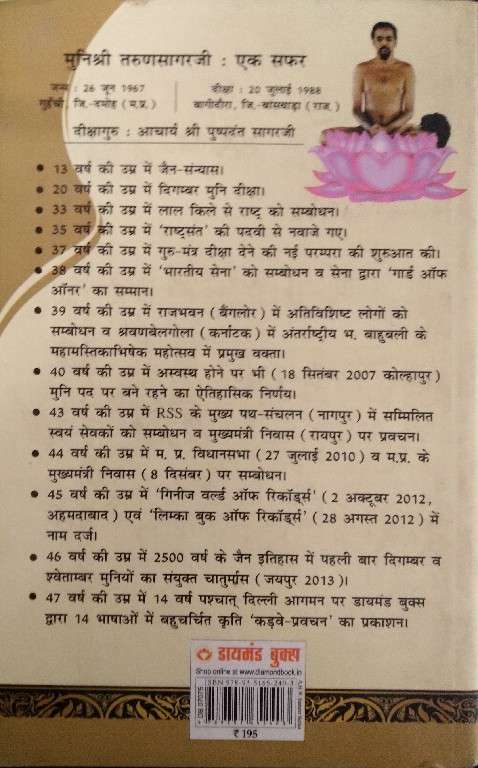 मुनिश्री तरुणसागरजी : एक सफर
जन्म : 26 जून 1967
गुहँची, जि.-दमोह (म.प्र.)
दीक्षा : 20 जुलाई 1988
बागीदौरा, जि.-बांसवाड़ा (राज.)
दीक्षागुरु : आचार्य श्री पुष्पदंत सागरजी
• 13 वर्ष की उम्र में जैन-संन्यास।
• 20 वर्ष की उम्र में दिगम्बर मुनि दीक्षा।
• 33 वर्ष की उम्र में लाल किले से राष्ट्र को सम्बोधन।
• 35 वर्ष की उम्र में 'राष्ट्रसंत' की पदवी से नवाजे गए।
• 37 वर्ष की उम्र में गुरु-मंत्र दीक्षा देने की नई परम्परा की शुरुआत की।
• 38 वर्ष की उम्र में 'भारतीय सेना' को सम्बोधन व सेना द्वारा 'गार्ड ऑफ
ऑनर' का सम्मान।
• 39 वर्ष की उम्र में राजभवन (बैंगलोर) में अतिविशिष्ट लोगों को
सम्बोधन व श्रवणबेलगोला (कर्नाटक) में अंतर्राष्ट्रीय भ. बाहुबली के
महामस्तिकाभिषेक महोत्सव में प्रमुख वक्ता।
• 40 वर्ष की उम्र में अस्वस्थ होने पर भी (18 सितंबर 2007 कोल्हापुर)
मुनि पद पर बने रहने का ऐतिहासिक निर्णय।
• 43 वर्ष की उम्र में RSS के मुख्य पथ-संचलन (नागपुर) में सम्मिलित
स्वयं सेवकों को सम्बोधन व मुख्यमंत्री निवास (रायपुर) पर प्रवचन।
• 44 वर्ष की उम्र में म. प्र. विधानसभा (27 जुलाई 2010) व म.प्र. के
मुख्यमंत्री निवास (8 दिसंबर) पर सम्बोधन।
• 45 वर्ष की उम्र में 'गिनीज वर्ल्ड ऑफ रिकॉर्ड्स' (2 अक्टूबर 2012,
अहमदाबाद) एवं 'लिम्का बुक ऑफ रिकॉर्ड्स' (28 अगस्त 2012) में
नाम दर्ज।
• 46 वर्ष की उम्र में 2500 वर्ष के जैन इतिहास में पहली बार दिगम्बर व
श्वेताम्बर मुनियों का संयुक्त चातुर्मास (जयपुर 2013)।
• 47 वर्ष की उम्र में 14 वर्ष पश्चात् दिल्ली आगमन पर डायमंड बुक्स
द्वारा 14 भाषाओं में बहुचर्चित कृति 'कड़वे-प्रवचन' का प्रकाशन।
डायमंड बुक्स
Shop online at www.diamondbook.in
₹ 195